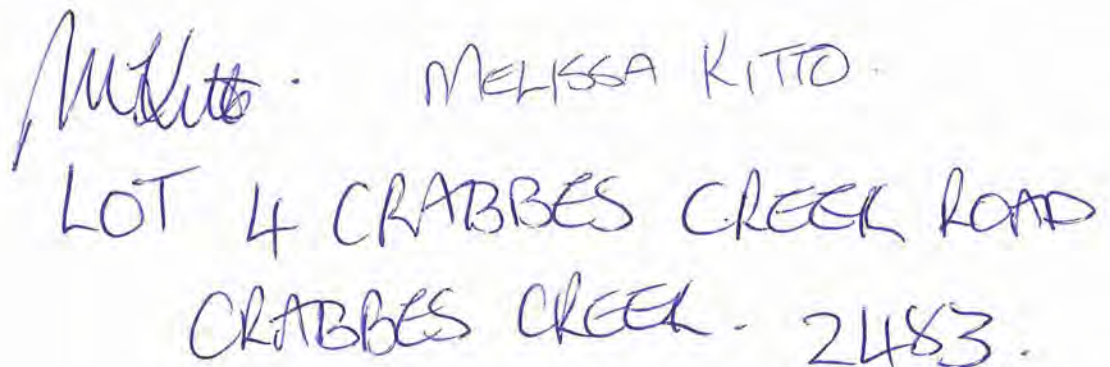 MKitto. MELISSA KITTO.
LOT 4 CRABBES CREEK ROAD
CRABBES CREEK. 2483.